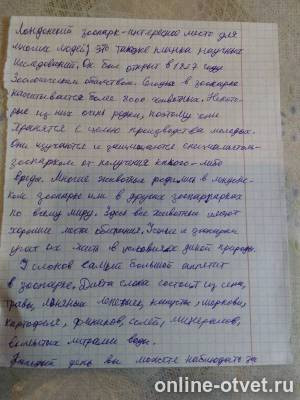 Лондонский зоопарк - интересное место для
многих людей, это также клиника научных
исследований. Он был открыт в 1827 году
Зоологическим обществом. Сегодня в зоопарке
насчитывается более 8000 животных. Некото-
рые из них очень редки, поэтому они
хранятся с целью производства молодых.
Они изучаются и защищаются специалистами
зоопарком от получения какого-либо
вреда. Многие животные родились в лондонс-
ком зоопарке или в других зоопарках
по всему миру. Здесь все животные имеют
хорошие места обитания. Ученые и зоопарки
учат их жить в условиях дикой природы.
У слонов самый большой аппетит
в зоопарке. Диета слона состоит из сена,
травы, капусты, моркови,
картофеля, фиников, солей, минералов,
литрами воды.
Каждый день вы можете наблюдать за
online-otvet.ru